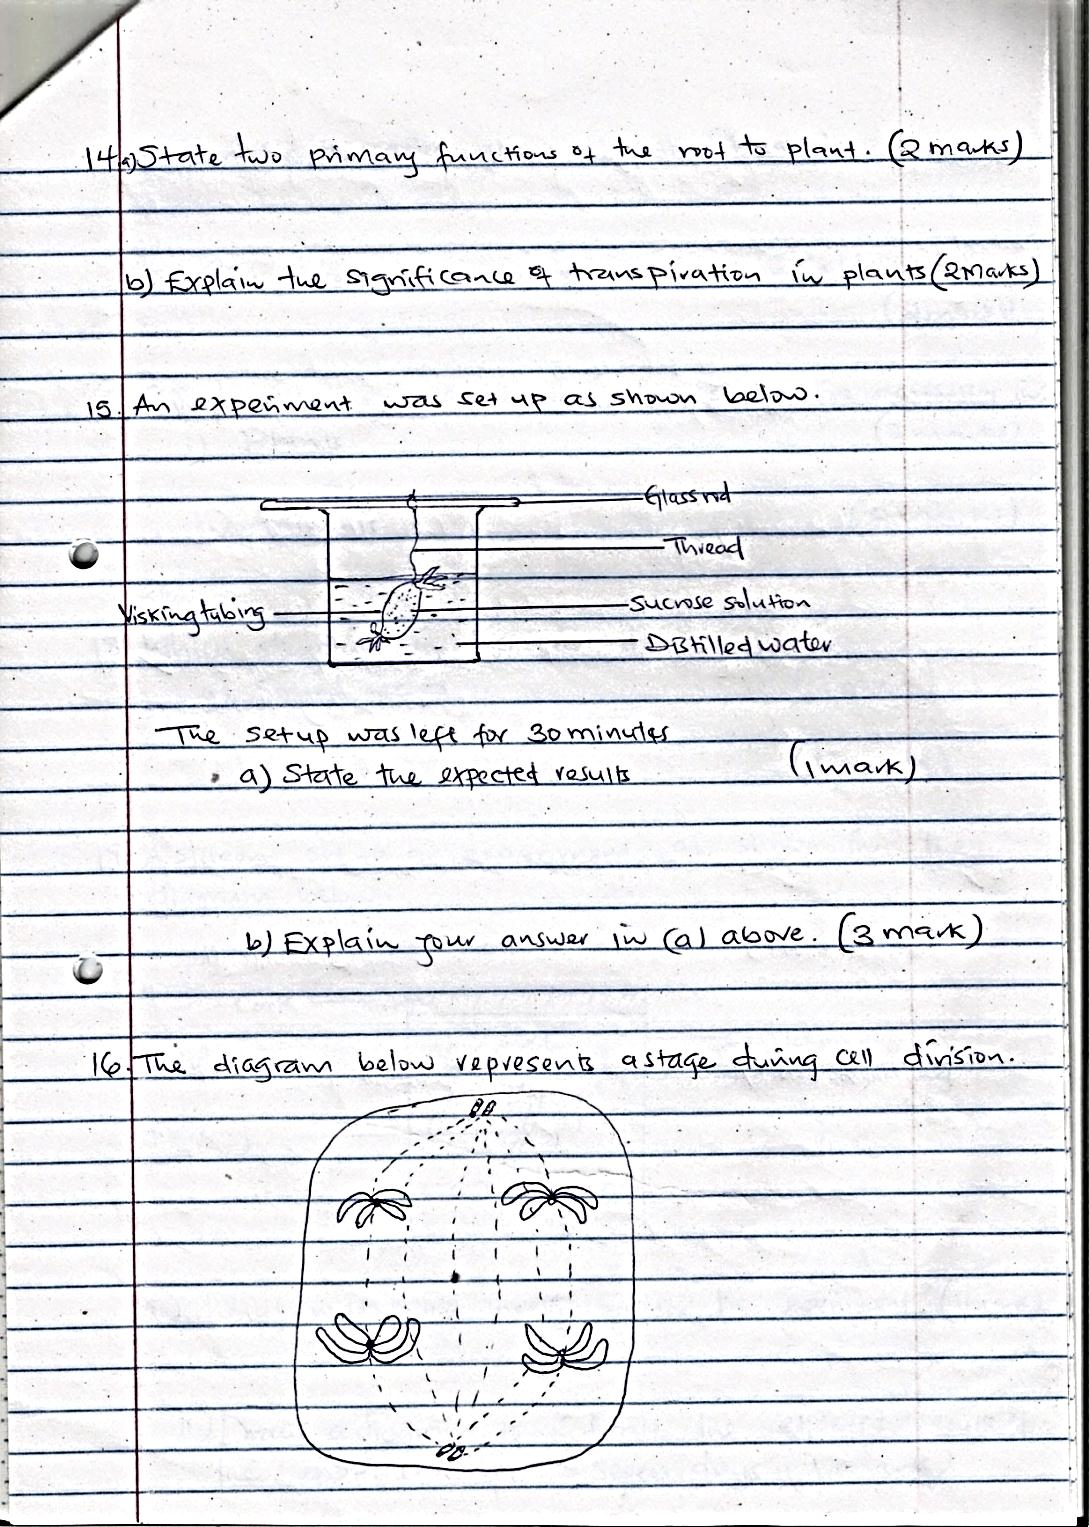 14.a) State two primary functions of the root to plant. (2 marks)
b) Explain the significance of transpiration in plants (2marks)
15. An experiment was set up as shown below.
Glass rod
Thread
Visking tubing
Sucrose solution
Distilled water
The setup was left for 30 minutes
a) State the expected results (1 mark)
b) Explain your answer in (a) above. (3 mark)
16. The diagram below represents a stage during cell division.